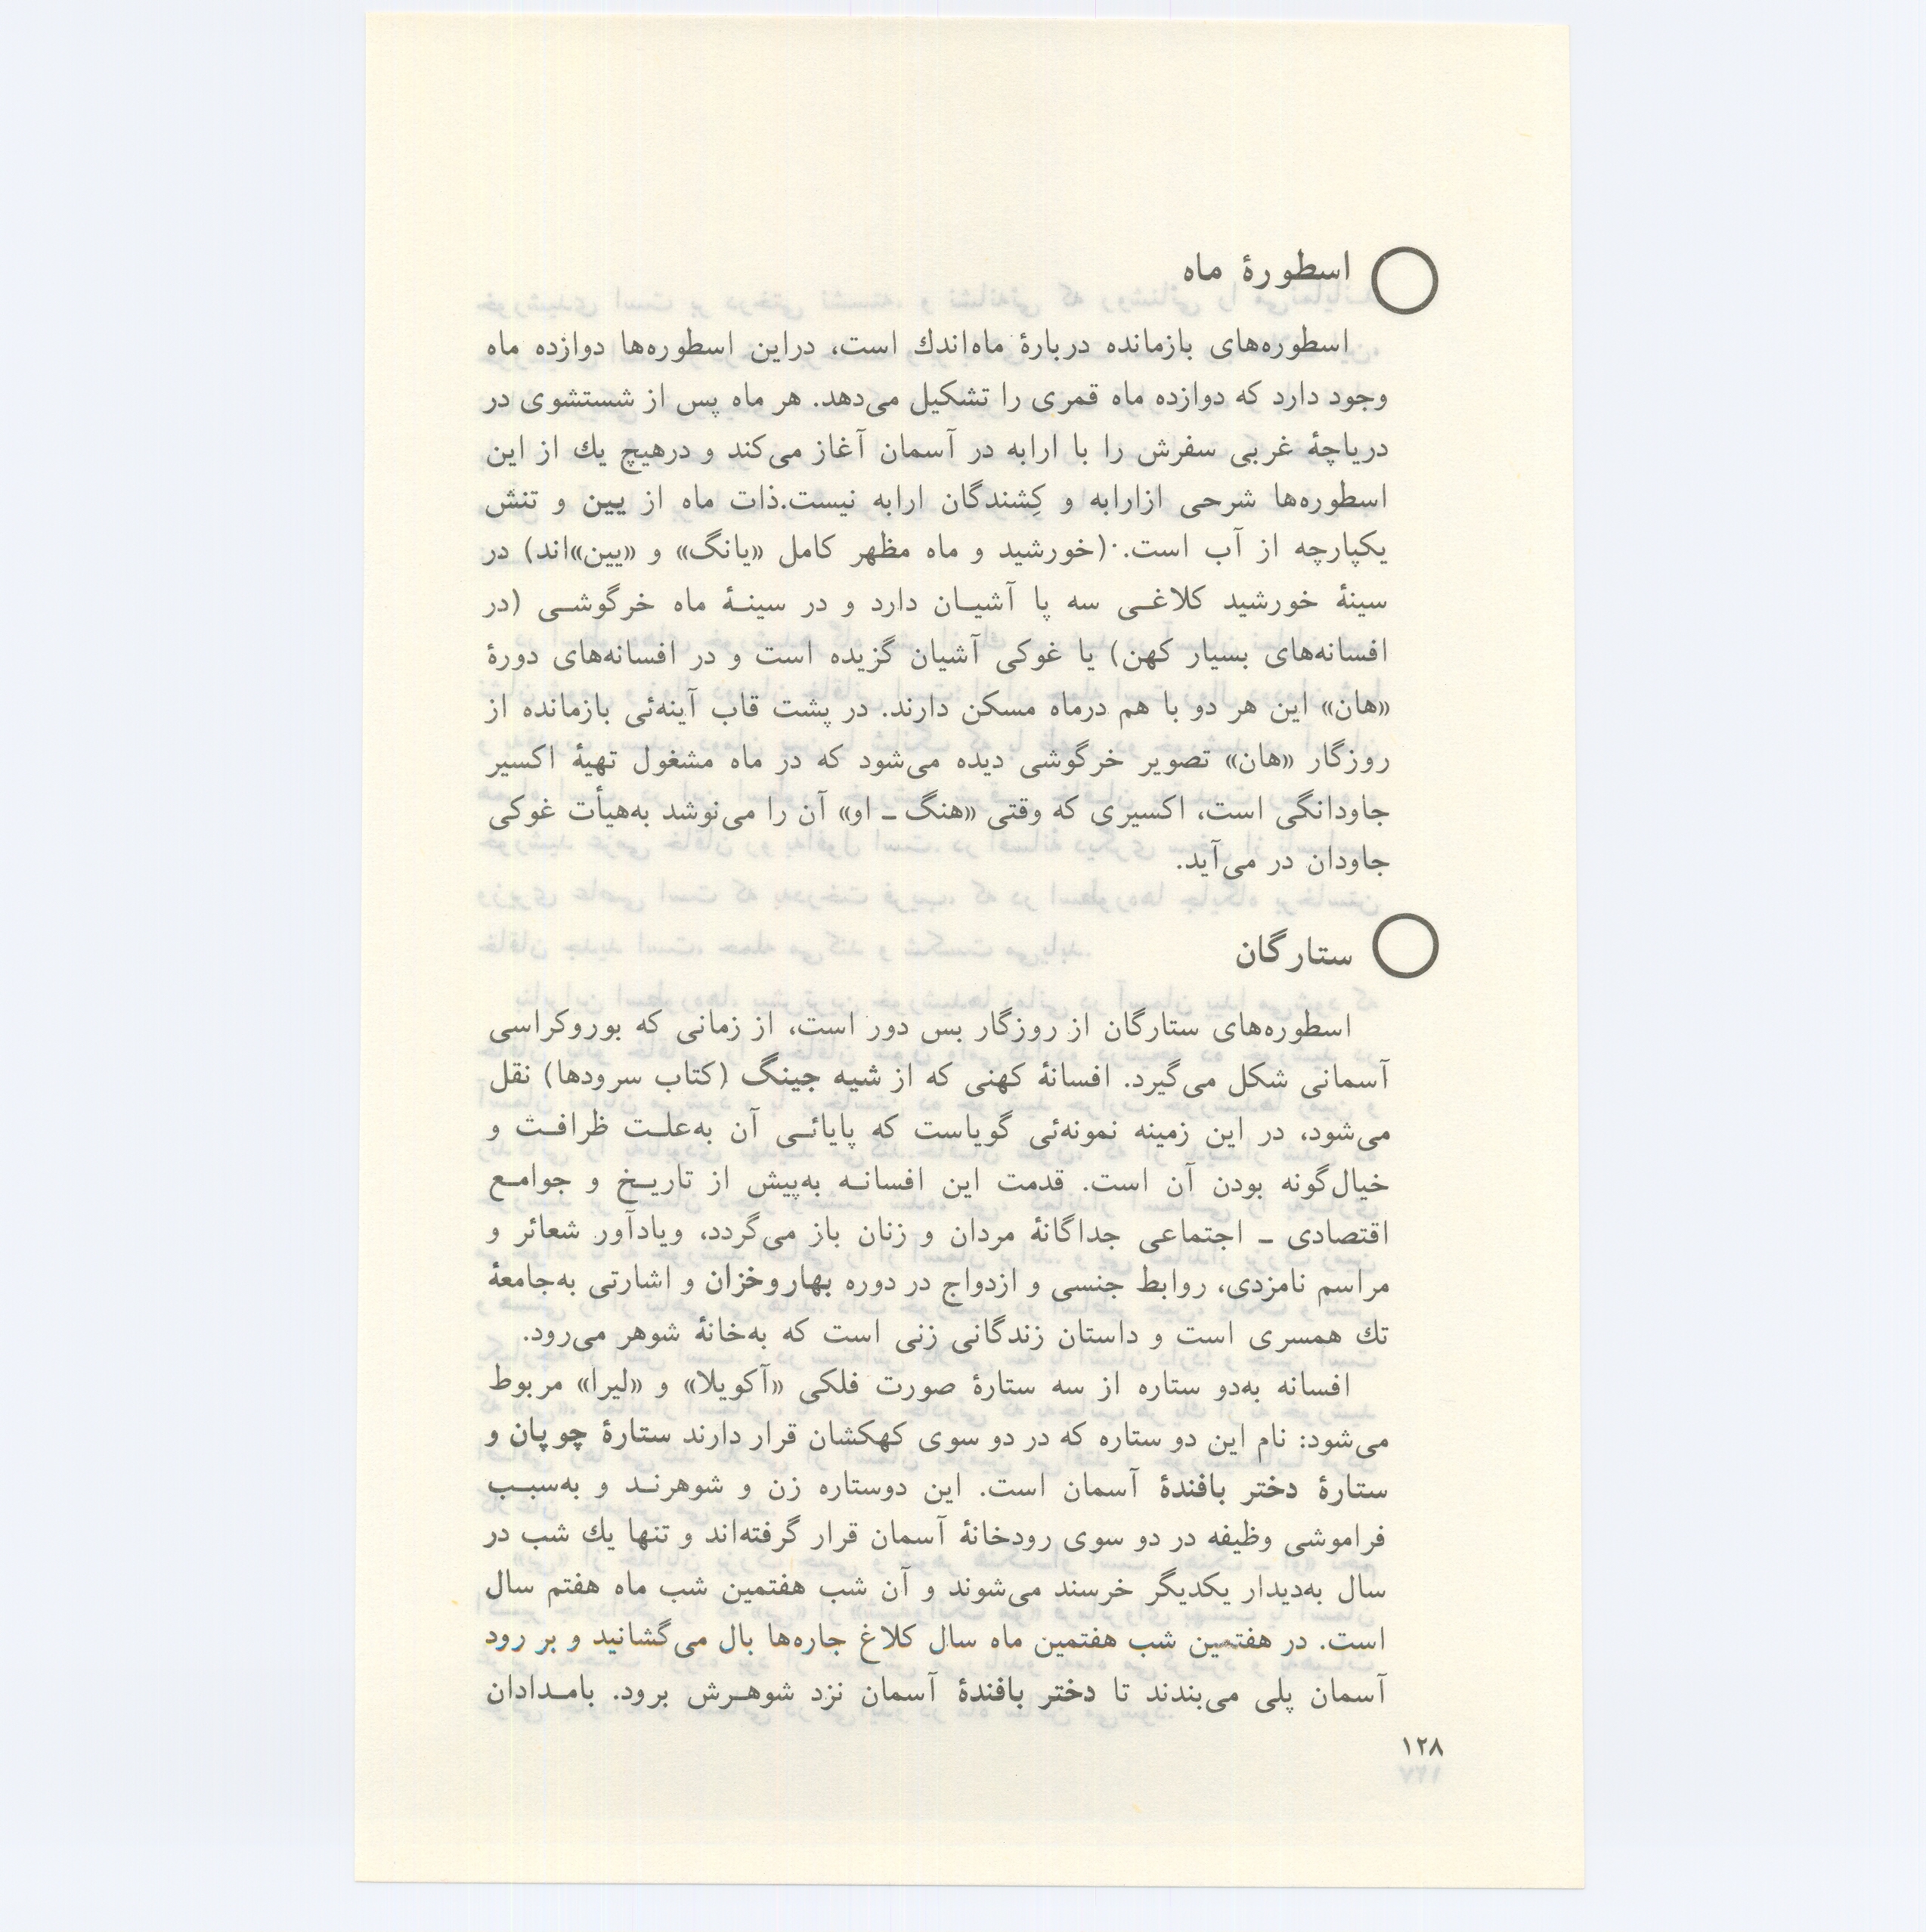 اسطورهٔ ماه
اسطوره‌های بازمانده دربارهٔ ماه‌اندك است، دراین اسطوره‌ها دوازده ماه
وجود دارد که دوازده ماه قمری را تشکیل می‌دهد. هر ماه پس از شستشوی در
دریاچهٔ غربی سفرش را با ارابه در آسمان آغاز می‌کند و درهیچ یك از این
اسطوره‌ها شرحی ازارابه و کِشندگان ارابه نیست.ذات ماه از یین و تنش
یکپارچه از آب است. (خورشید و ماه مظهر کامل «یانگ» و «یین»اند) در
سینهٔ خورشید کلاغـی سه پا آشیـان دارد و در سینـهٔ ماه خرگوشـی (در
افسانه‌های بسیار کهن) یا غوکی آشیان گزیده است و در افسانه‌های دورهٔ
«هان» این هر دو با هم درماه مسکن دارند. در پشت قاب آینه‌ئی بازمانده از
روزگار «هان» تصویر خرگوشی دیده می‌شود که در ماه مشغول تهیهٔ اکسیر
جاودانگی است، اکسیری که وقتی «هنگ ـ او» آن را می‌نوشد به‌هیأت غوکی
جاودان در می‌آید.
ستارگان
اسطوره‌های ستارگان از روزگار بس دور است، از زمانی که بوروکراسی
آسمانی شکل می‌گیرد. افسانهٔ کهنی که از شیه جینگ (کتاب سرودها) نقل
می‌شود، در این زمینه نمونه‌ئی گویاست که پایائـی آن به‌علـت ظرافـث و
خیال‌گونه بودن آن است. قدمت این افسانـه به‌پیش از تاریـخ و جوامـع
اقتصادی ـ اجتماعی جداگانهٔ مردان و زنان باز می‌گردد، ویادآور شعائر و
مراسم نامزدی، روابط جنسی و ازدواج در دوره بهاروخزان و اشارتی به‌جامعهٔ
تك همسری است و داستان زندگانی زنی است که به‌خانهٔ شوهر می‌رود.
افسانه به‌دو ستاره از سه ستارهٔ صورت فلکی «آکویلا» و «لیرا» مربوط
می‌شود: نام این دو ستاره که در دو سوی کهکشان قرار دارند ستارهٔ چوپان و
ستارهٔ دختر بافندهٔ آسمان است. این دوستاره زن و شوهرنـد و به‌سبـب
فراموشی وظیفه در دو سوی رودخانهٔ آسمان قرار گرفته‌اند و تنها یك شب در
سال به‌دیدار یکدیگر خرسند می‌شوند و آن شب هفتمین شب ماه هفتم سال
است. در هفتمین شب هفتمین ماه سال کلاغ جاره‌ها بال می‌گشانید و بر رود
آسمان پلی می‌بندند تا دختر بافندهٔ آسمان نزد شوهـرش برود. بامـدادان
۱۲۸